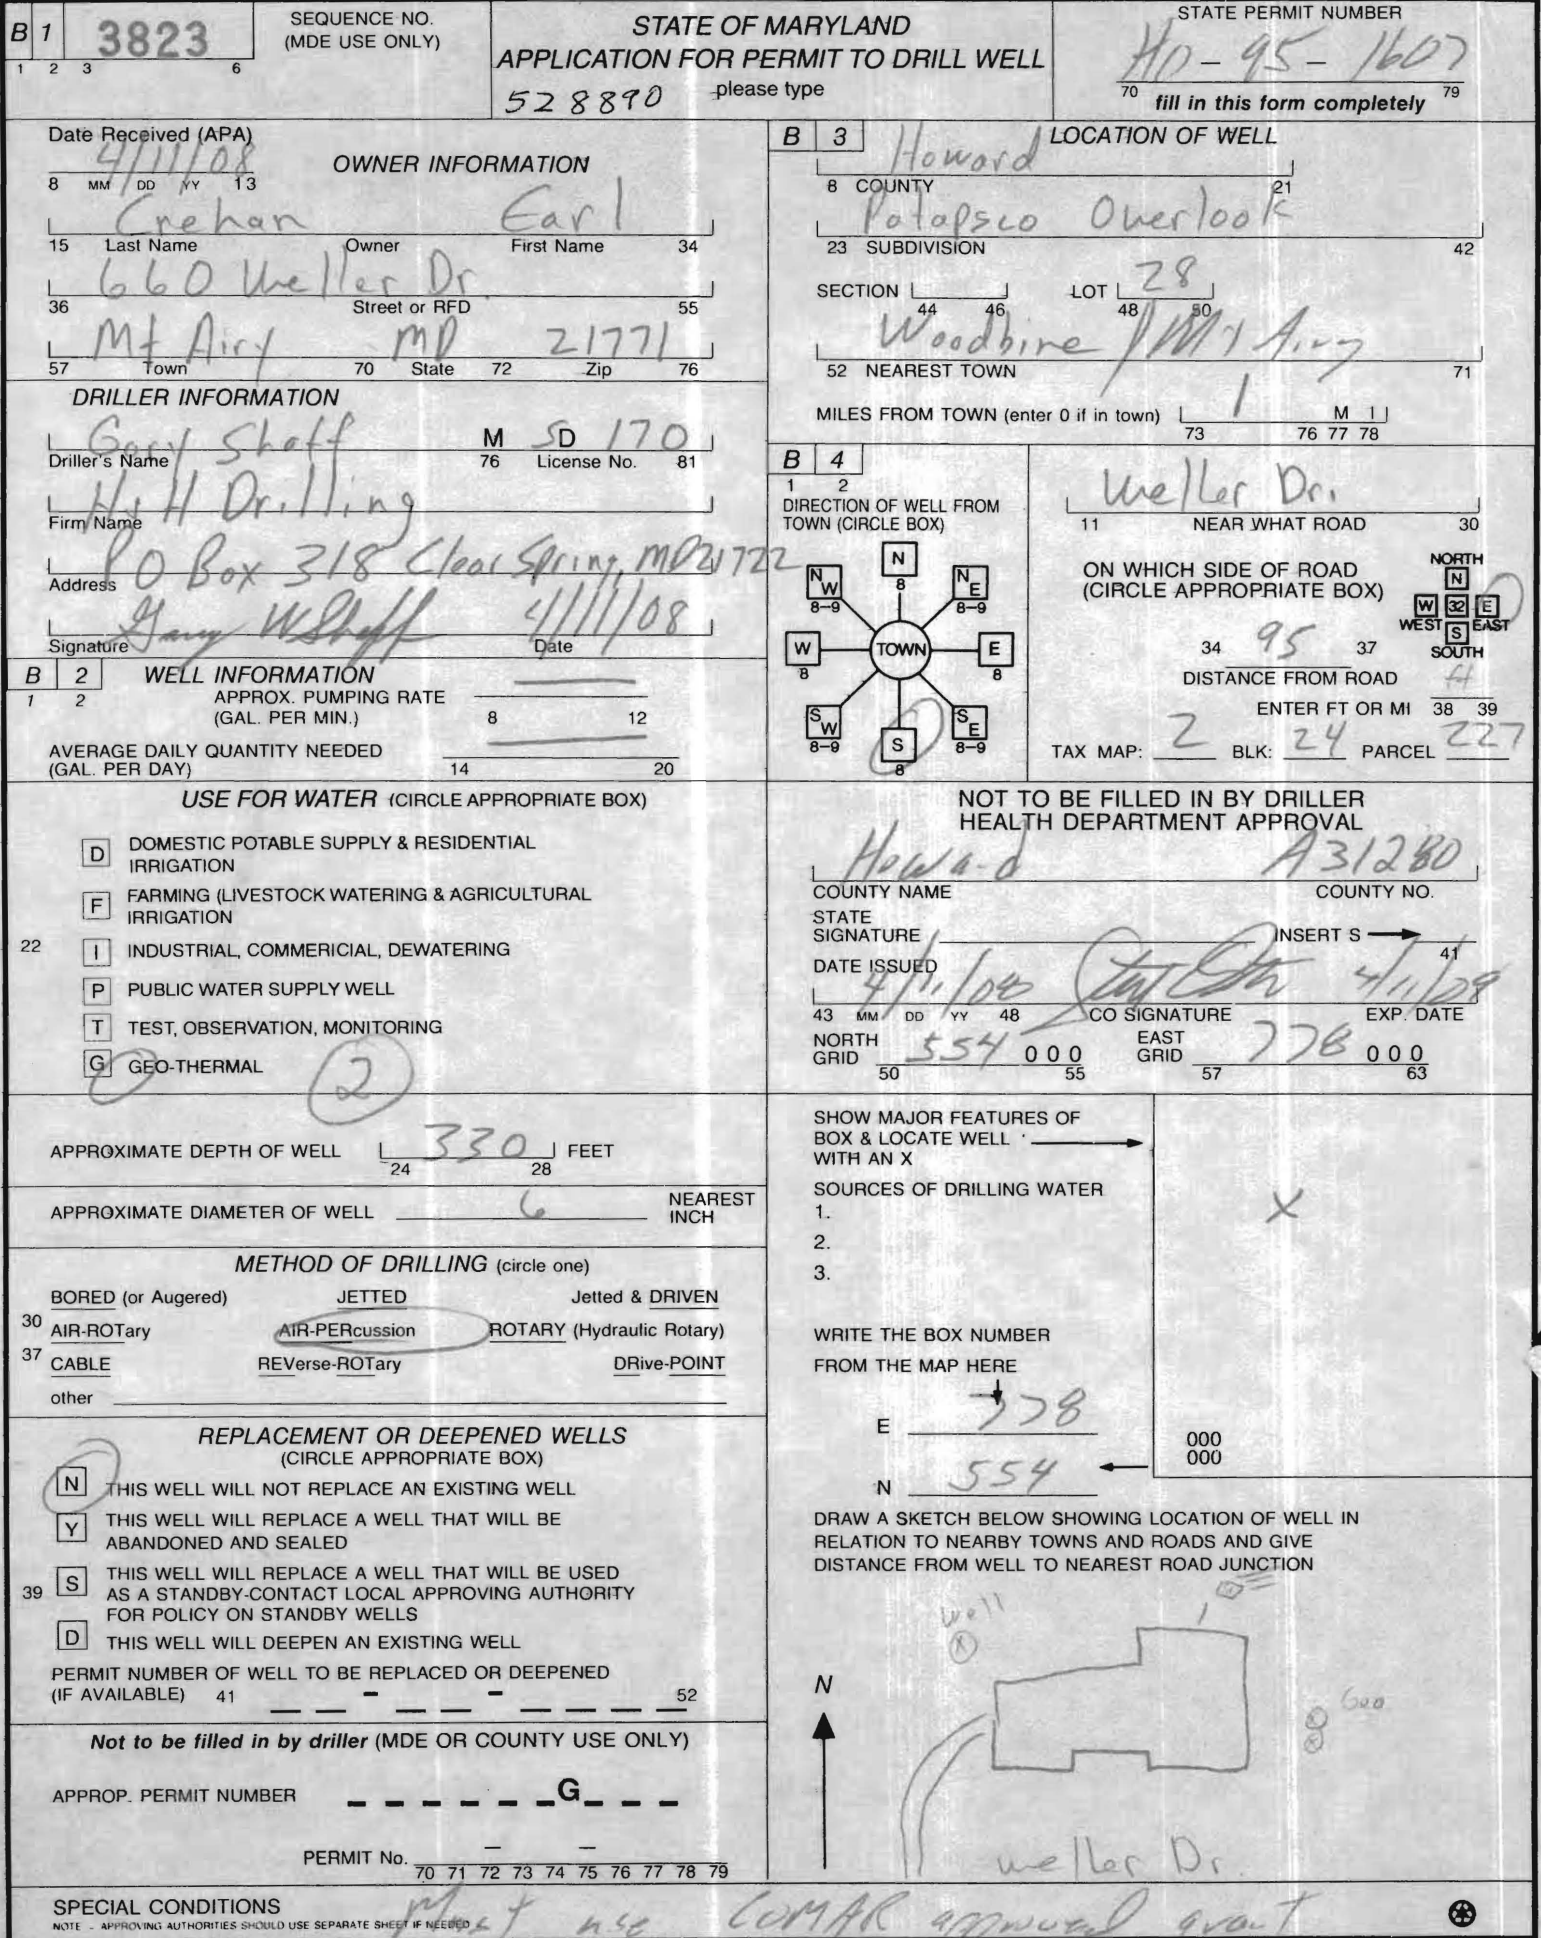 B 1 3823
1 2 3 6
SEQUENCE NO.
(MDE USE ONLY)
STATE OF MARYLAND
APPLICATION FOR PERMIT TO DRILL WELL
please type
528890
STATE PERMIT NUMBER
HO-95-1607
70 79
fill in this form completely
Date Received (APA)
4/11/08
8 MM DD YY 13
OWNER INFORMATION
Crehan Earl
15 Last Name Owner First Name 34
660 Weller Dr
36 Street or RFD 55
Mt Airy MD 21771
57 Town 70 State 72 Zip 76
DRILLER INFORMATION
Gary Shaff M SD 170
Driller's Name 76 License No. 81
H&H Drilling
Firm Name
PO Box 318 Clear Spring, MD 21722
Address
Gary W Shaff 4/11/08
Signature Date
B 2 WELL INFORMATION
1 2
APPROX. PUMPING RATE
(GAL. PER MIN.) 8 12
AVERAGE DAILY QUANTITY NEEDED
(GAL. PER DAY) 14 20
USE FOR WATER (CIRCLE APPROPRIATE BOX)
D DOMESTIC POTABLE SUPPLY & RESIDENTIAL
IRRIGATION
F FARMING (LIVESTOCK WATERING & AGRICULTURAL
IRRIGATION
22 I INDUSTRIAL, COMMERICIAL, DEWATERING
P PUBLIC WATER SUPPLY WELL
T TEST, OBSERVATION, MONITORING
G GEO-THERMAL 2
APPROXIMATE DEPTH OF WELL 330 FEET
24 28
APPROXIMATE DIAMETER OF WELL 6 NEAREST
INCH
METHOD OF DRILLING (circle one)
BORED (or Augered) JETTED Jetted & DRIVEN
30 AIR-ROTary AIR-PERcussion ROTARY (Hydraulic Rotary)
37 CABLE REVerse-ROTary DRive-POINT
other
REPLACEMENT OR DEEPENED WELLS
(CIRCLE APPROPRIATE BOX)
N THIS WELL WILL NOT REPLACE AN EXISTING WELL
Y THIS WELL WILL REPLACE A WELL THAT WILL BE
ABANDONED AND SEALED
39 S THIS WELL WILL REPLACE A WELL THAT WILL BE USED
AS A STANDBY-CONTACT LOCAL APPROVING AUTHORITY
FOR POLICY ON STANDBY WELLS
D THIS WELL WILL DEEPEN AN EXISTING WELL
PERMIT NUMBER OF WELL TO BE REPLACED OR DEEPENED
(IF AVAILABLE) 41 - - 52
Not to be filled in by driller (MDE OR COUNTY USE ONLY)
APPROP. PERMIT NUMBER G
PERMIT No. - -
70 71 72 73 74 75 76 77 78 79
B 3 LOCATION OF WELL
Howard
8 COUNTY 21
Patapsco Overlook
23 SUBDIVISION 42
SECTION LOT 28
44 46 48 50
Woodbine / Mt Airy
52 NEAREST TOWN 71
MILES FROM TOWN (enter 0 if in town) 1 M I
73 76 77 78
B 4
1 2
DIRECTION OF WELL FROM
TOWN (CIRCLE BOX)
N
8
NW NE
8-9 8-9
W TOWN E
8 8
SW S SE
8-9 8 8-9
Weller Dr.
11 NEAR WHAT ROAD 30
ON WHICH SIDE OF ROAD
(CIRCLE APPROPRIATE BOX)
NORTH
N
W 32 E
WEST S EAST
SOUTH
34 95 37
DISTANCE FROM ROAD
ft
ENTER FT OR MI 38 39
TAX MAP: 2 BLK: 24 PARCEL 227
NOT TO BE FILLED IN BY DRILLER
HEALTH DEPARTMENT APPROVAL
Howard A31280
COUNTY NAME COUNTY NO.
STATE
SIGNATURE INSERT S
41
DATE ISSUED
4/11/08 4/11/09
43 MM DD YY 48 CO SIGNATURE EXP. DATE
NORTH GRID 554 000
50 55
EAST GRID 778 000
57 63
SHOW MAJOR FEATURES OF
BOX & LOCATE WELL
WITH AN X
X
SOURCES OF DRILLING WATER
1.
2.
3.
WRITE THE BOX NUMBER
FROM THE MAP HERE
E 778
N 554
000
000
DRAW A SKETCH BELOW SHOWING LOCATION OF WELL IN
RELATION TO NEARBY TOWNS AND ROADS AND GIVE
DISTANCE FROM WELL TO NEAREST ROAD JUNCTION
well
X
N
Geo
X
X
Weller Dr.
SPECIAL CONDITIONS
NOTE - APPROVING AUTHORITIES SHOULD USE SEPARATE SHEET IF NEEDED
Must use COMAR approved grout